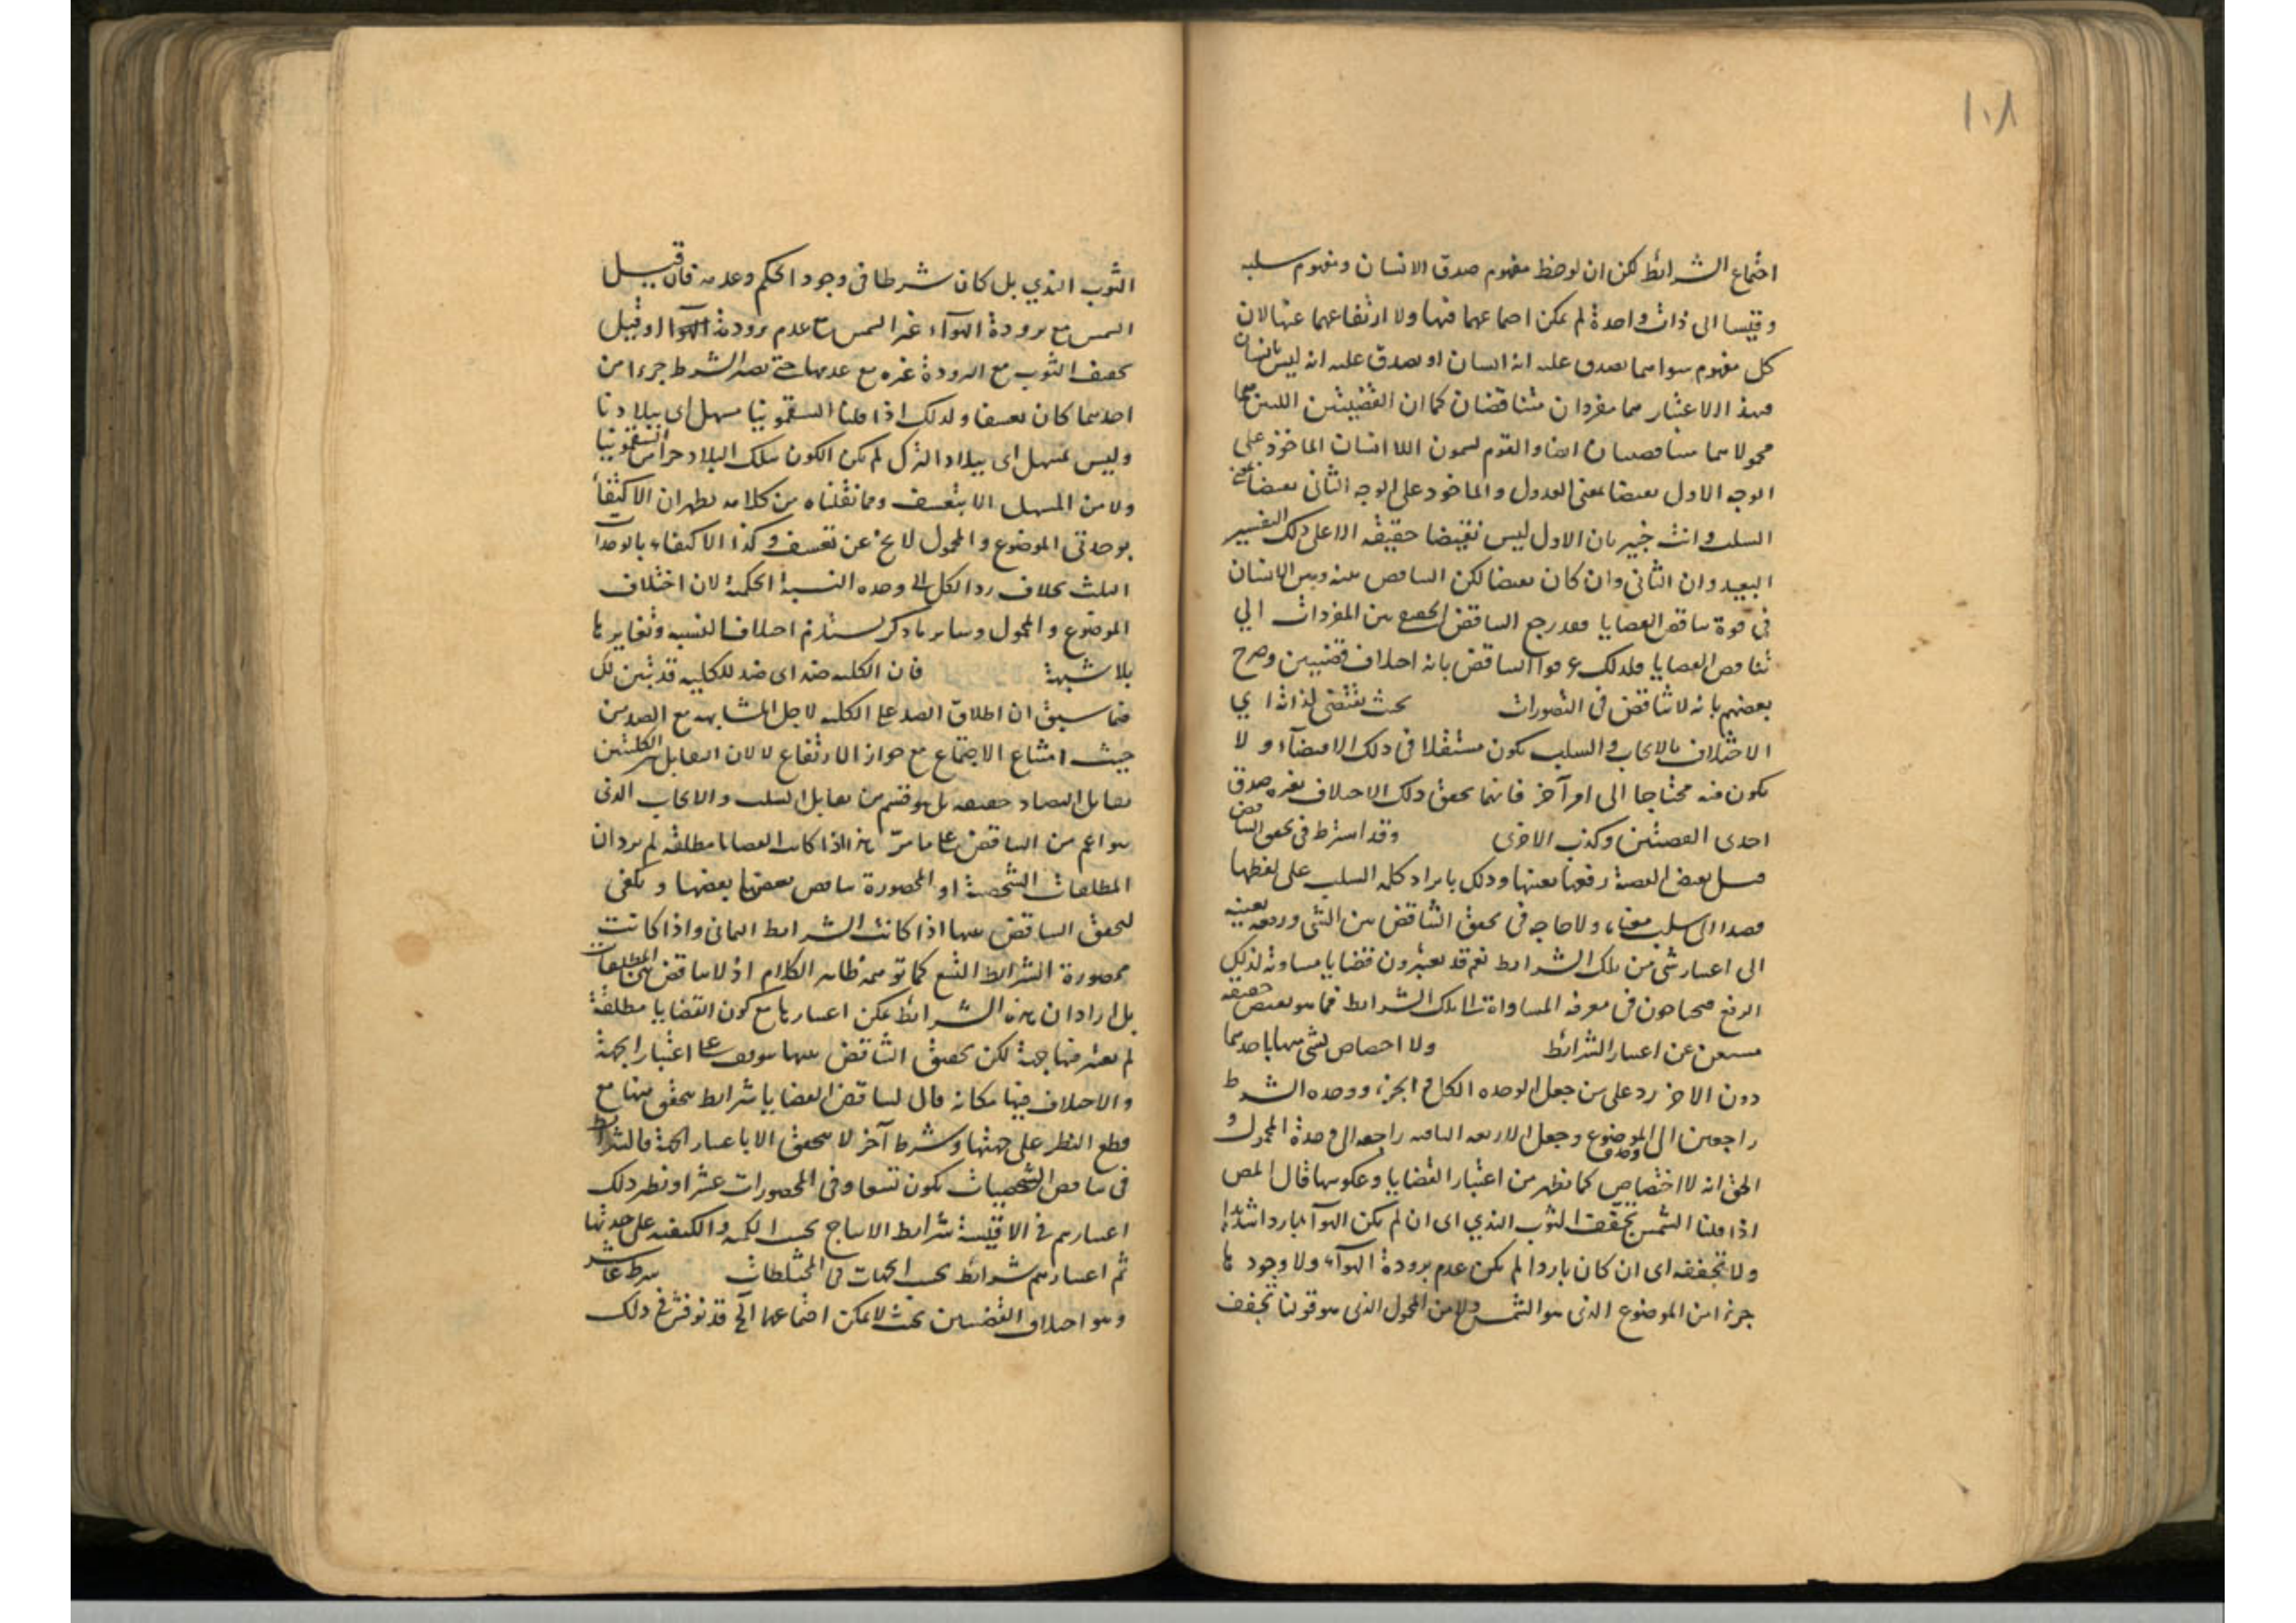 ١٠٨
اجتماع الشرائط لكن ان لوحظ مفهوم صدق الانسان ومفهوم سلبه
وقيسا الى ذات واحدة لم يمكن اجتماعهما فيها ولا ارتفاعهما عنها لان
كل مفهوم سواهما يصدق عليه انه انسان او يصدق عليه انه ليس بانسان
فبهذا الاعتبار هما مفردان متناقضان كما ان القضيتين اللتين هما
محمولاهما متناقضتان ايضا والقوم يسمون اللاانسان الماخوذ على
الوجه الاول نقيضا بمعنى العدول والماخوذ على الوجه الثاني نقيضا بمعنى
السلب وانت خبير بان الاول ليس نقيضا حقيقة الا على ذلك التفسير
البعيد وان الثاني وان كان نقيضا لكن التناقض بينه وبين الانسان
في قوة تناقض القضايا فقد رجع التناقض بين المفردات الي
تناقض القضايا فلذلك عرفوا التناقض بانه اختلاف قضيتين وصرح
بعضهم بانه لا تناقض في التصورات بحيث يقتضى لذاته اي
الاختلاف بالايجاب والسلب يكون مستقلا في ذلك الاقتضآء ولا
يكون فيه محتاجا الى امر آخر فاينما يحقق ذلك الاختلاف صدق
احدى القضيتين وكذب الاخرى وقد اشترط في تحقق التناقض
قيل نقيض القضية رفعها بعينها وذلك بايراد كلمة السلب على لفظها
قصدا الى سلب معناه ولا حاجة في تحقق التناقض بين الشئ ورفعه بعينه
الى اعتبار شئ من تلك الشرائط نعم قد يعتبرون قضايا مساوية لذلك
الرفع فيحتاجون في معرفة المساواة الى تلك الشرائط فما هو نقيض حقيقة
مستغن عن اعتبار الشرائط ولا اختصاص لشئ منها باحدهما
دون الاخر رد على من جعل الوحدة الكل والجزء ووحدة الشرط
راجعتين الى وحدة الموضوع وجعل الاربعة الباقية راجعة الى وحدة المحمول و
الحق انه لا اختصاص كما يظهر من اعتبار القضايا وعكوسها قال المص
اذا قلنا الشمس تجفف الثوب الندي اى ان لم يكن الهوآء باردا شديدا
ولا تجففه اى ان كان باردا لم يكن عدم برودة الهوآء ولا وجودها
جزءا من الموضوع الذى هو الشمس ولا من المحمول الذى هو قولنا تجفف
الثوب الندي بل كان شرطا في وجود الحكم وعدمه فان قيل
الشمس مع برودة الهوآء غير الشمس مع عدم برودة الهوآء او قيل
تجفيف الثوب مع البرودة غيره مع عدمها حتى يصير الشرط جزءا من
احدهما كان تعسفا ولذلك اذا قلنا السقمونيا مسهل اى ببلادنا
وليس بمسهل اى ببلاد الترك لم يكن الكون بتلك البلاد جزءا من السقمونيا
ولا من المسهل الا بتعسف ومما نقلناه من كلامه يظهر ان الاكتفاء
بوحدتي الموضوع والمحمول لا يخ عن تعسف وكذا الاكتفاء بالوحدات
الثلث بخلاف رد الكل الى وحدة النسبة الحكمية لان اختلاف
الموضوع والمحمول وساير ما ذكر يستلزم اختلاف النسبة وتغايرها
بلا شبهة فان الكلية ضد اى ضد للكلية قد تبين لك
فيما سبق ان اطلاق الضد على الكلية لاجل المشابهة مع الضد من
حيث امتناع الاجتماع مع جواز الارتفاع لا لان التقابل بين الكليتين
تقابل التضاد حقيقة بل هو قسم من تقابل السلب والايجاب الذى
هو اعم من التناقض على ما مرّ هذا اذا كانت القضايا مطلقة لم يرد ان
المطلقات الشخصية او المحصورة تناقض بعضها بعضها ويكفى
لتحقق التناقض بينها اذا كانت الشرائط الثماني واذا كانت
محصورة الشرائط التسع كما توهمه ظاهر الكلام اذ لا تناقض بين المطلقات
بل اراد ان هذه الشرائط يمكن اعتبارها مع كون القضايا مطلقة
لم يعتبر فيها جهة لكن تحقق التناقض بينها موقوف على اعتبار الجهة
والاختلاف فيها فكانه قال لتناقض القضايا شرائط يتحقق فيها مع
قطع النظر على جهتها وشرط آخر لا يتحقق الا باعتبار الجهة فالشرائط
في تناقض الشخصيات يكون تسعا وفى المحصورات عشرا ونظير ذلك
اعتبارهم في الاقيسة شرائط الانتاج بحسب الكمية والكيفية على حدتها
ثم اعتبارهم شرائط بحسب الجهات في المختلطات شرط عاشر
وهو اختلاف القضيتين بحيث لا يمكن اجتماعهما الخ قد نوقش في ذلك